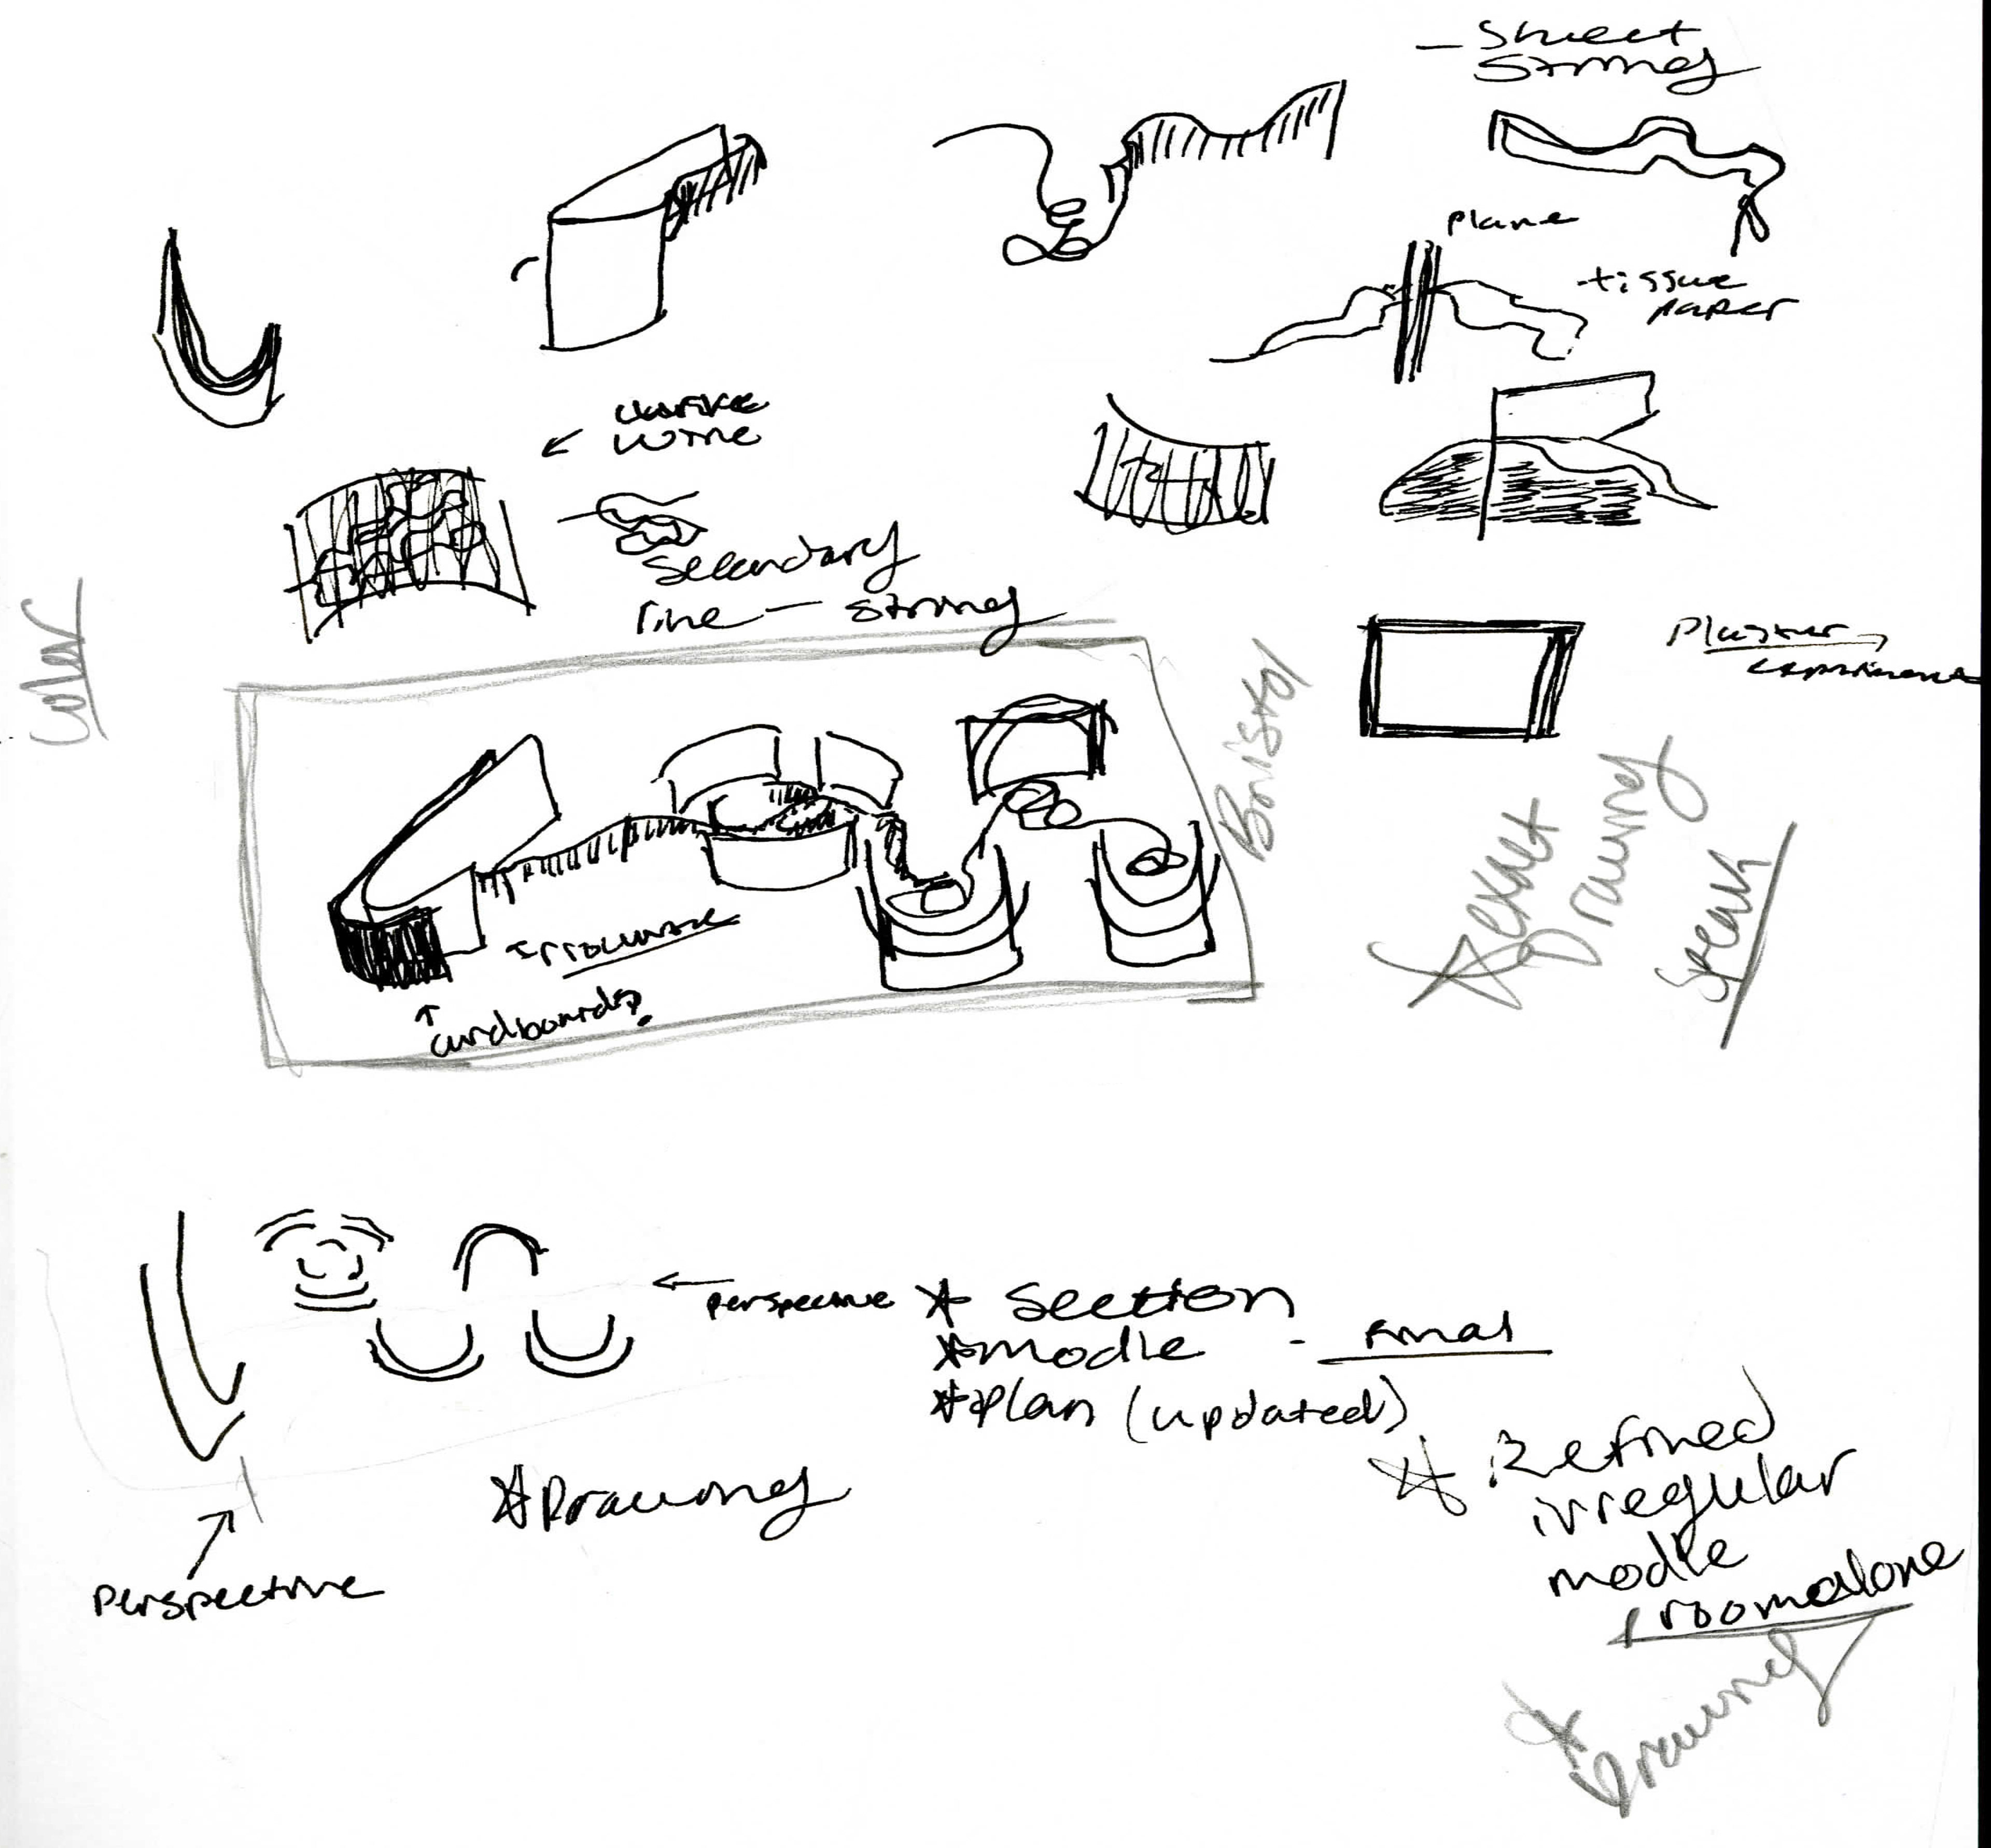 - Sheet
string
plane
- tissue
paper
← wire
Secondary
line - string
Color
Bristol
Plaster
experiment
Drawing
Speak
↑
cardboard?
← perspective
* Section
* modle - final
* plan (updated)
* Drawing
perspective
* Refined
irregular
modle
room alone
* Drawing